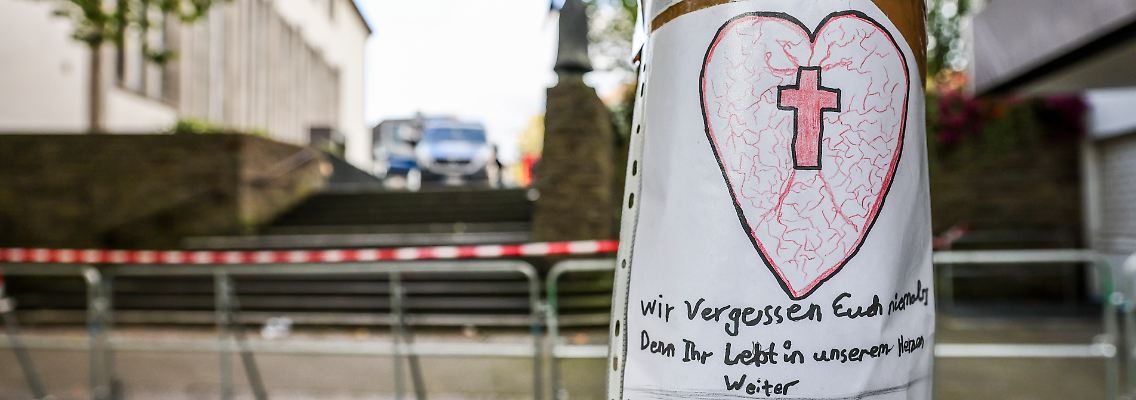 Wir Vergessen Euch niemals
Denn Ihr Lebt in unserem Herzen
Weiter